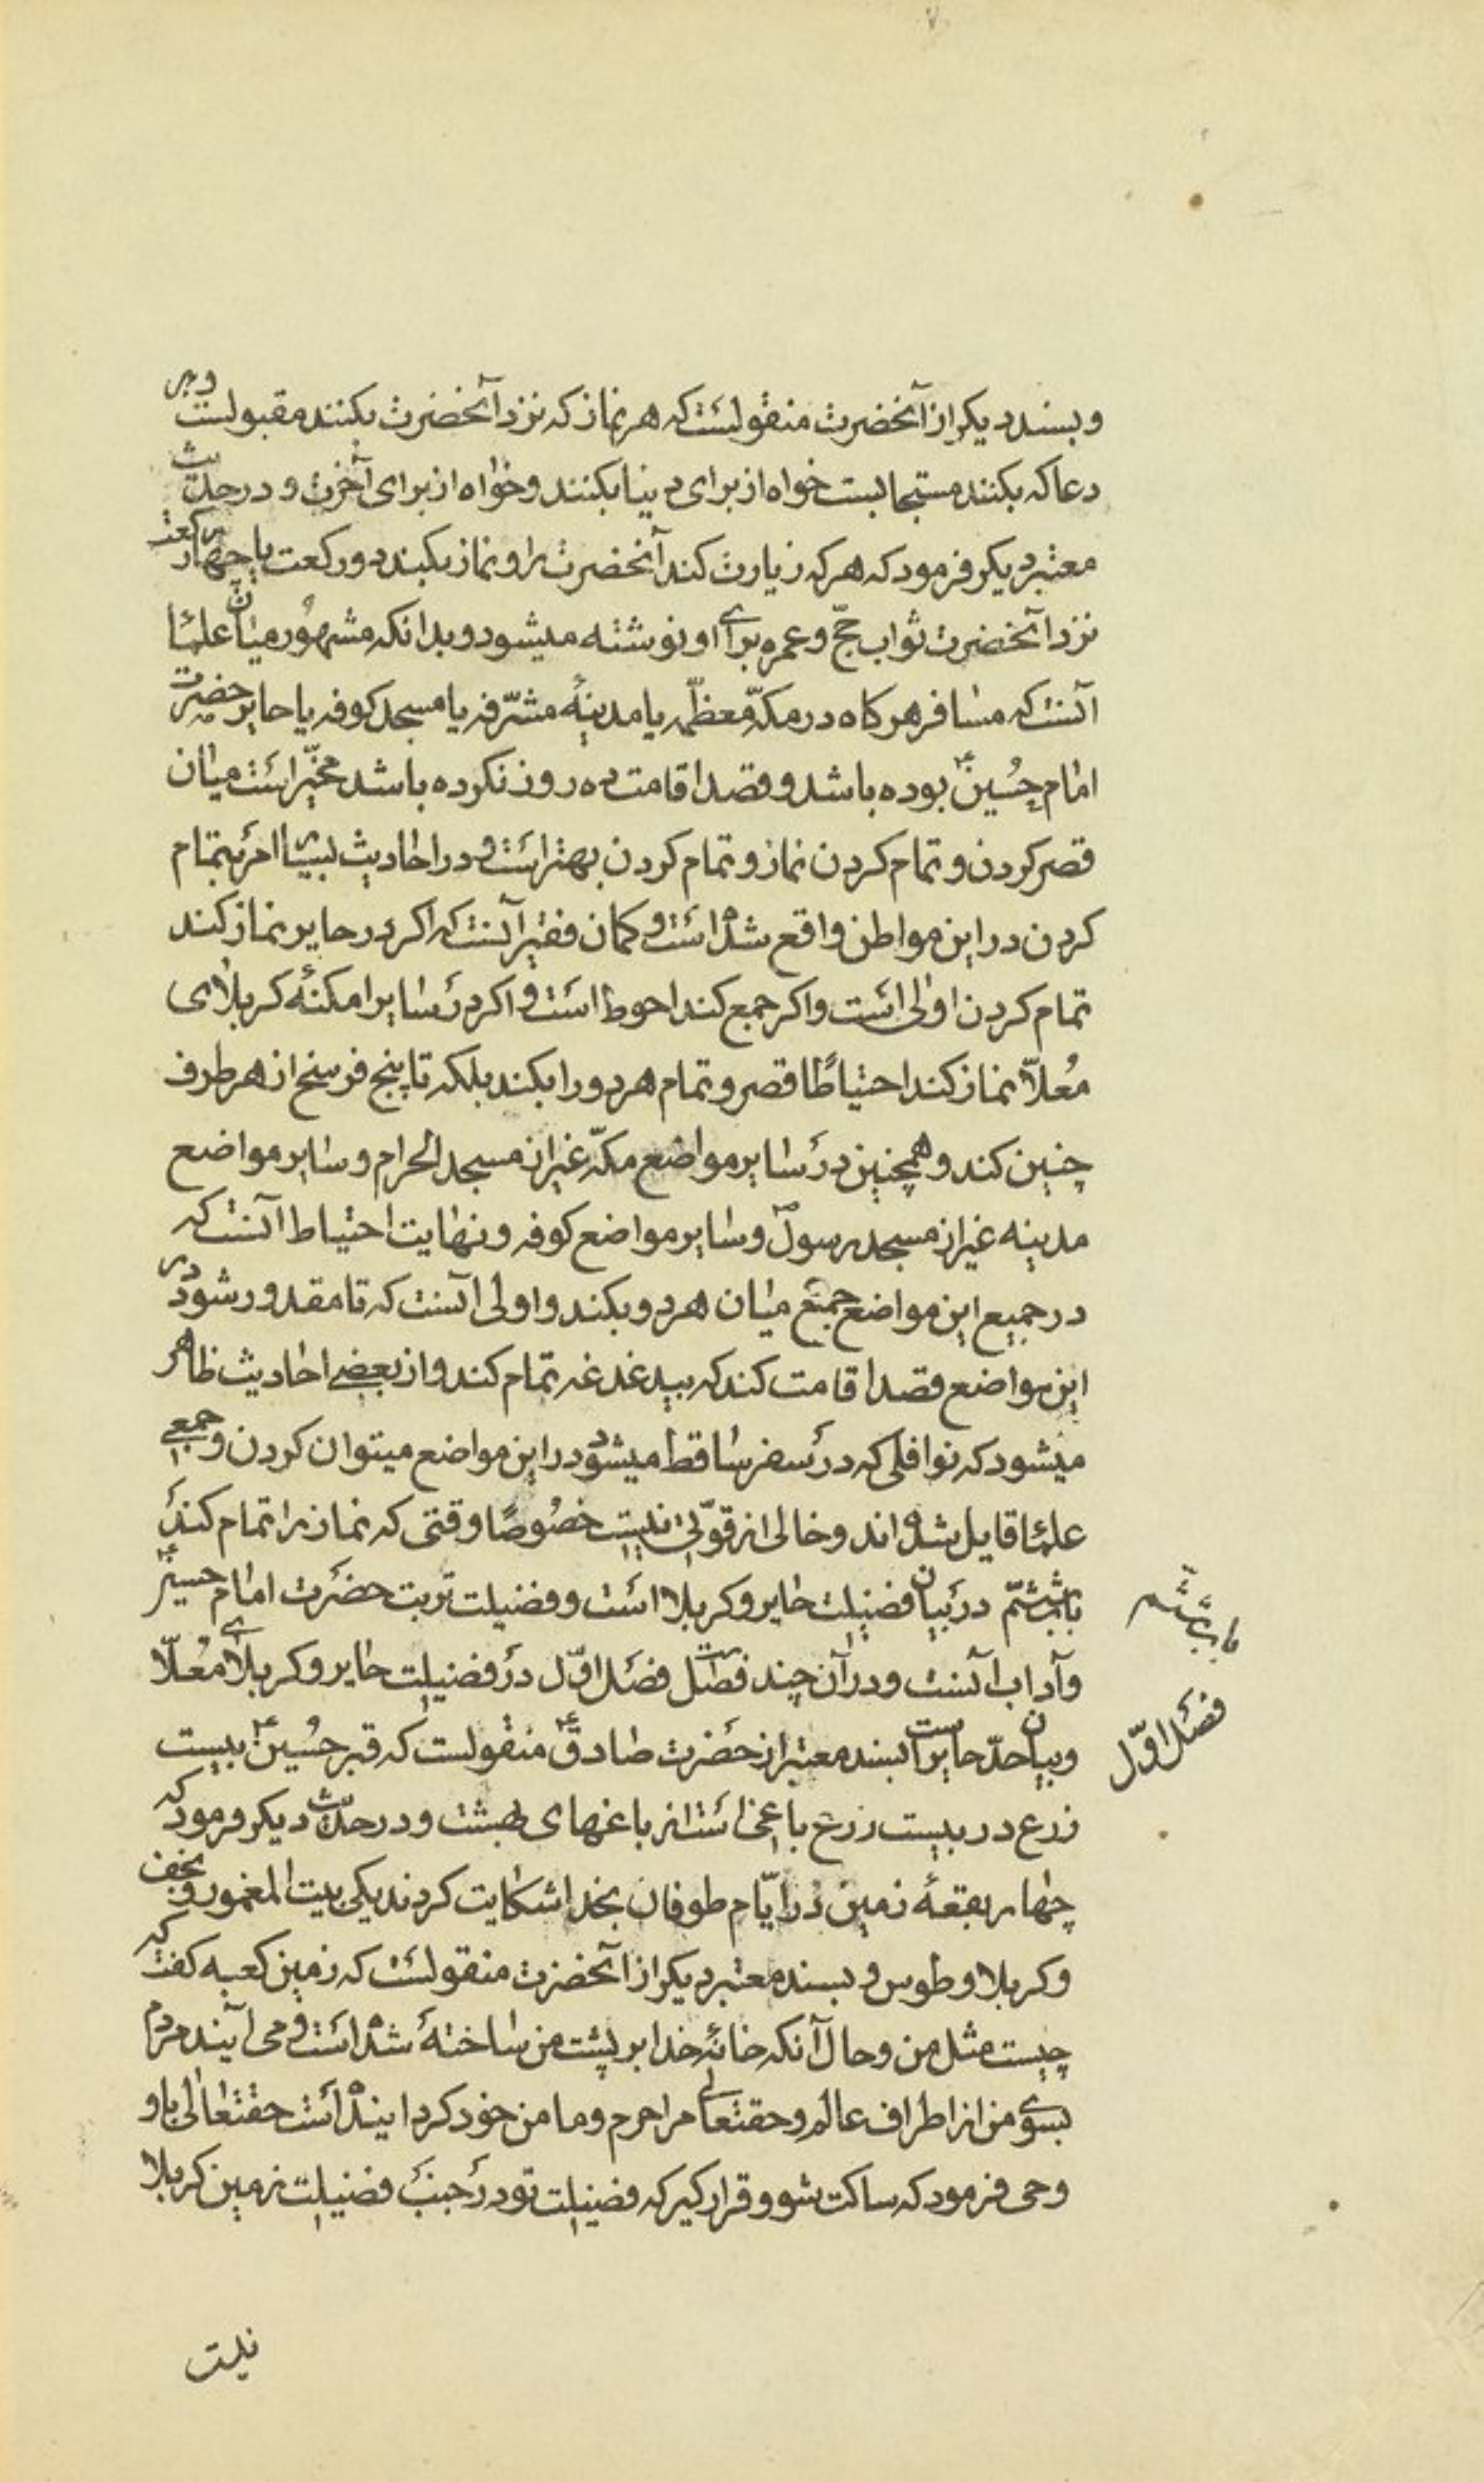 وبسند دیکر از آنحضرت منقولست که هر نماز که نزد آنحضرت بکنند مقبولست وهر
دعا که بکنند مستجابست خواه از برای دینا بکنند وخواه از برای آخرت و در حدیث
معتبر دیکر فرمود که هر که زیارت کند آنحضرت را و نماز بکند دو رکعت یا چهار رکعت
نزد آنحضرت ثواب حجّ و عمره برای او نوشته میشود و بدانکه مشهور میان علما
آنست که مسافر هر کاه در مکّه معظّمه یا مدینهٔ مشرّفه یا مسجد کوفه یا حایر حضرت
امام حُسین ع بوده باشد و قصد اقامت ده روز نکرده باشد مخیّر است میان
قصر کردن و تمام کردن نماز و تمام کردن بهتر است و در احادیث بسیار امر بتمام
کردن در این مواطن واقع شده است و کمان فقیر آنست که اکر در حایر نماز کند
تمام کردن اولی است و اکر جمع کند احوط است و اکر در سایر امکنهٔ کربلای
مُعلاّ نماز کند احتیاطًا قصر و تمام هر دو را بکند بلکه تا پنج فرسخ از هر طرف
چنین کند و همچنین در سایر مواضع مکّه غیر از مسجد الحرام و سایر مواضع
مدینه غیر از مسجد رسول ص و سایر مواضع کوفه و نهایت احتیاط آنست که
در جمیع این مواضع جمع میان هر دو بکند و اولی آنست که تا مقدور شود در
این مواضع قصد اقامت کند که بیدغدغه تمام کند و از بعضی احادیث ظاهر
میشود که نوافلی که در سفر ساقط میشود در این مواضع میتوان کردن و جمعی
علما قایل شده اند و خالی از قوّتی نیست خصُوصًا وقتی که نماز را تمام کند
باب ششم در بیان فضیلت حایر و کربلا است و فضیلت تربت حضرت امام حسین ع
و آداب آنست و در آن چند فصلست فصل اوّل در فضیلت حایر و کربلای مُعلاّ
و بیان حدّ حایر است بسند معتبر از حضرت صادق ع منقولست که قبر حُسین ع بیست
زرع در بیست زرع باغی است از باغهای بهشت و در حدیث دیکر فرمود که
چهار بقعهٔ زمین در ایّام طوفان بخدا شکایت کردند یکی بیت المعمور و نجف
و کربلا و طوس و بسند معتبر دیکر از آنحضرت منقولست که زمین کعبه کفت که
چیست مثل من و حال آنکه خانهٔ خدا بر پشت من ساخته شده است و می آیند مردم
بسوی من از اطراف عالم و حقتعالی مرا حرم و مامن خود کردانیده است حقتعالی باو
وحی فرمود که ساکت شو و قرار کیر که فضیلت تو در جنب فضیلت زمین کربلا
باب ششم
فصل اوّل
نیست